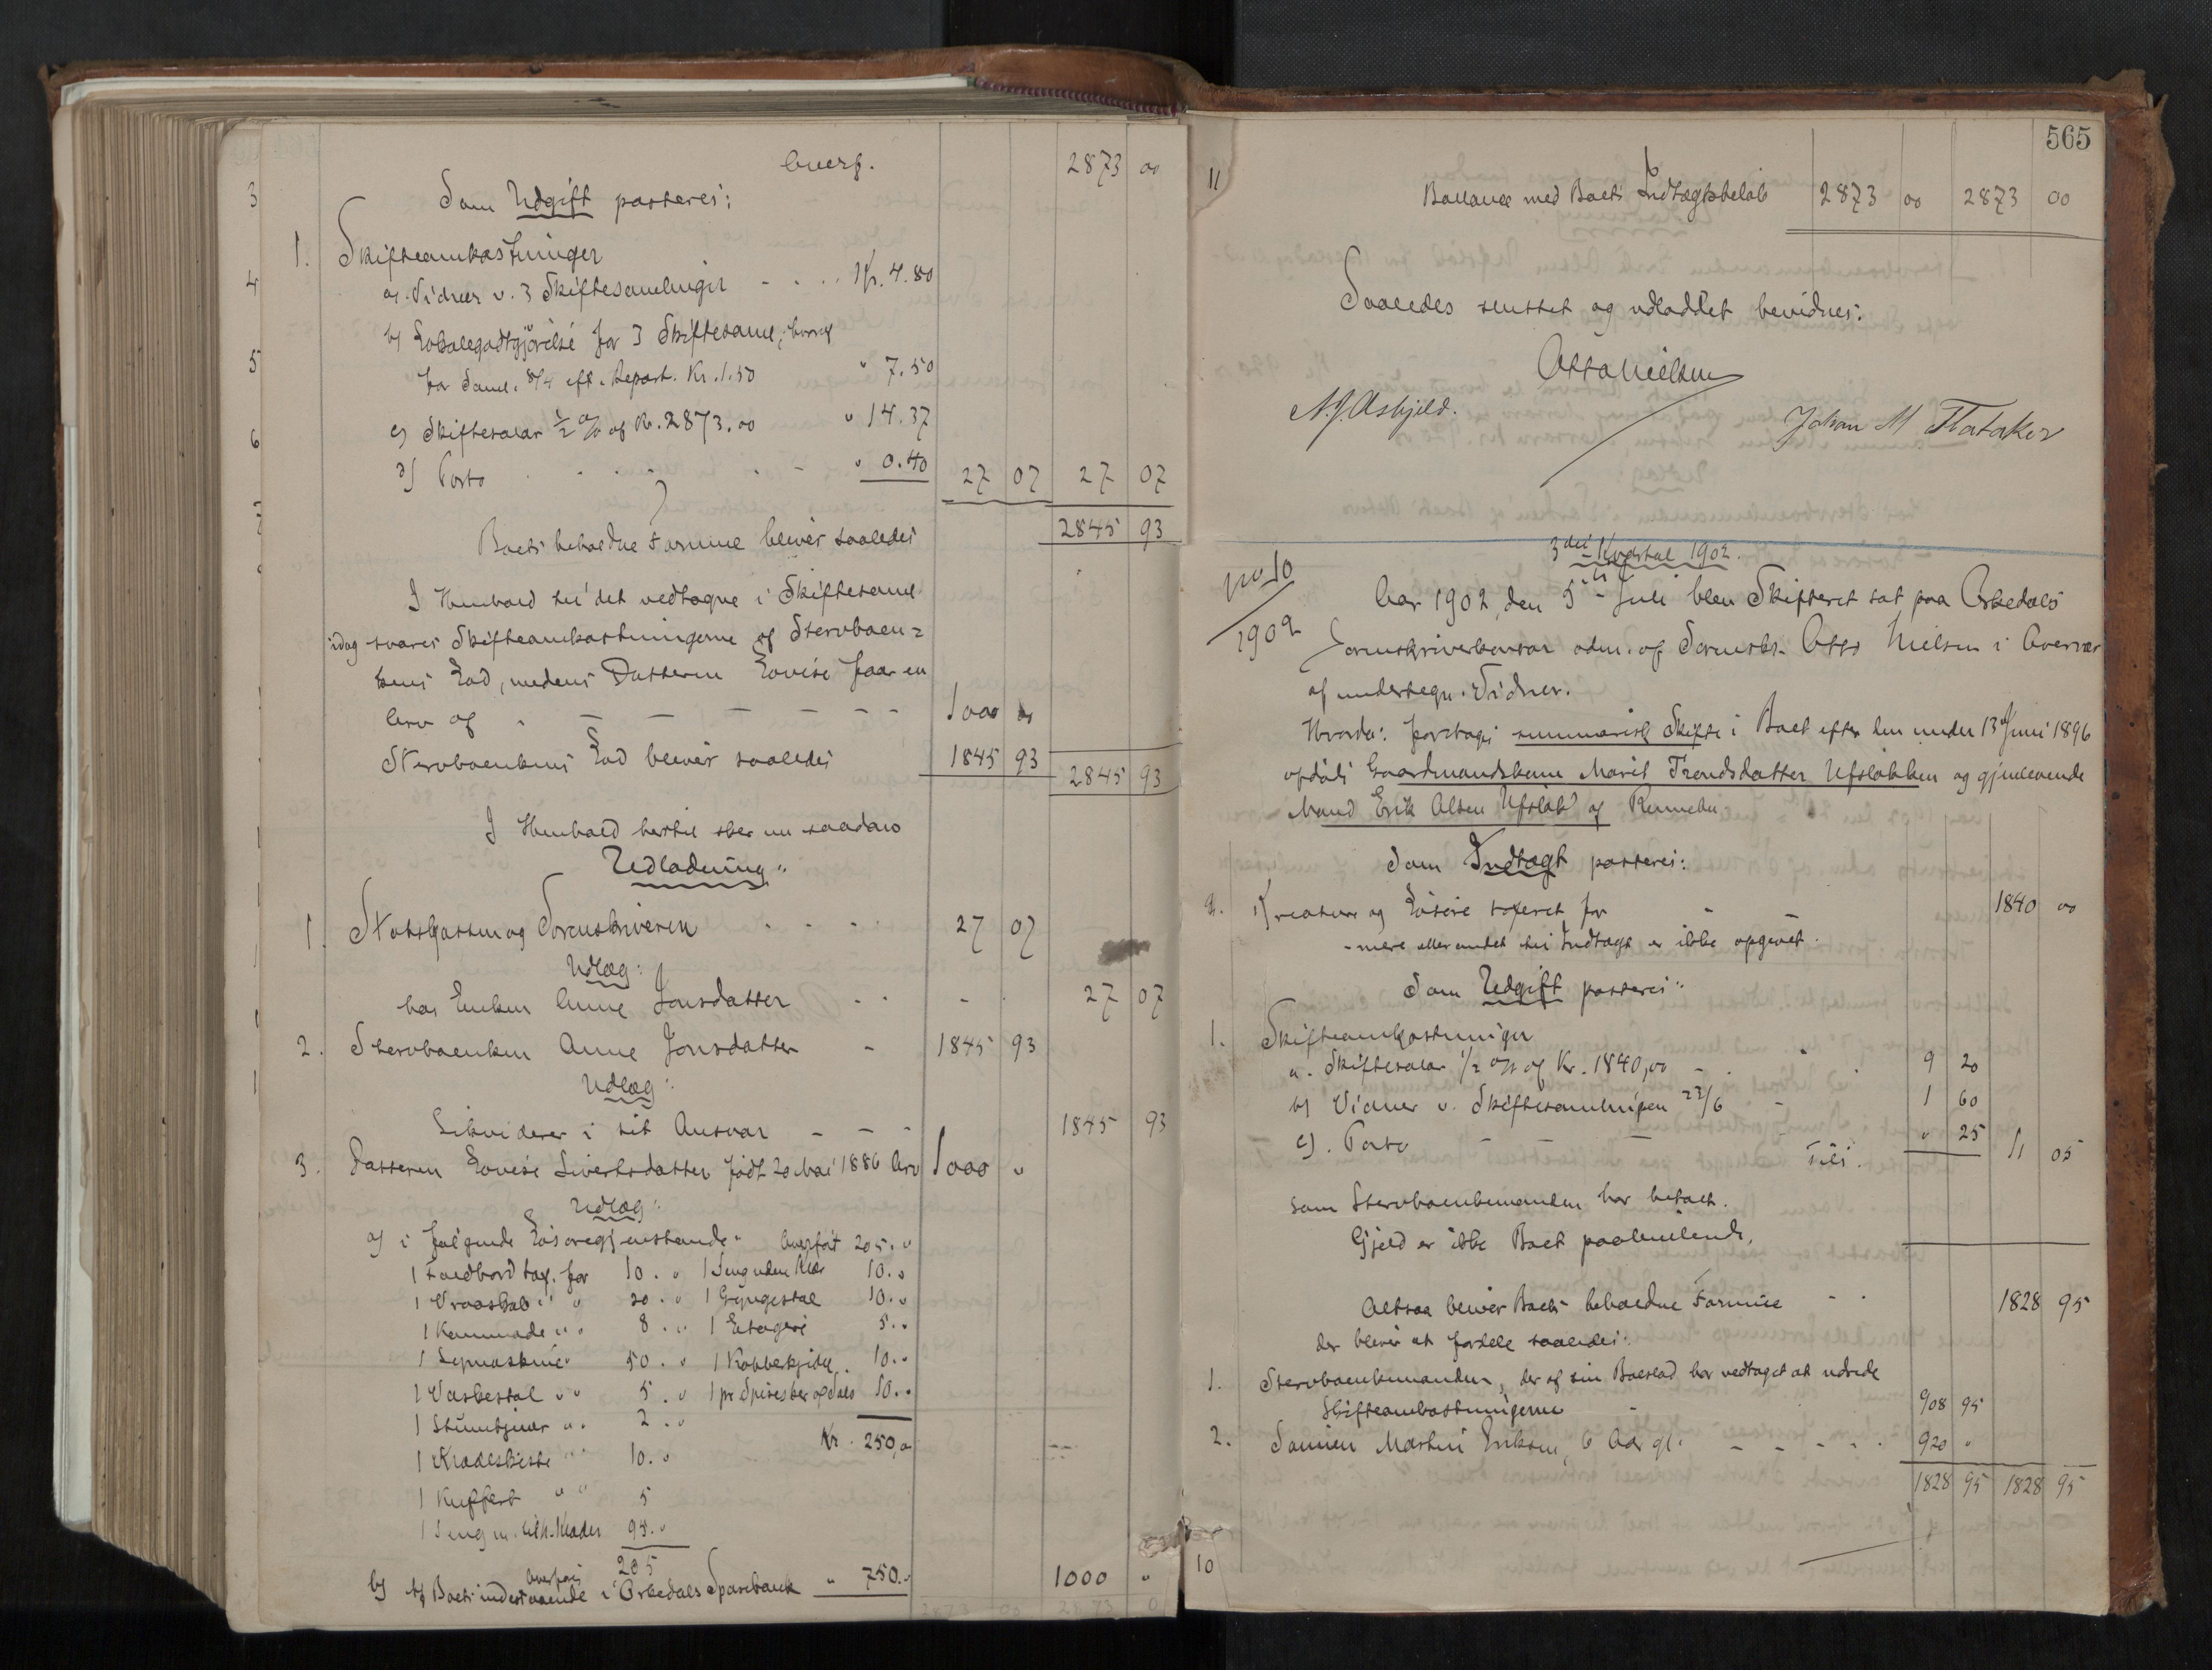 Overf. 2873 00
Som Udgift posteres:
1. Skifteomkostninger
a. Vidner v. 3 Skiftesamlinger - - - Kr. 4.80
b) Lokalegodtgjörelse for 3 Skiftesaml., hvoraf
for Saml. 8/4 eft. Repart. Kr. 1.50 " 7.50
c) Skiftesalær ½ % af Kr. 2873.00 " 14.37
d) Porto - - - " 0.40 27 07 27 07
Boets beholdne Formue bliver saaledes 2845 93
I Henhold til det vedtagne i Skiftesaml.
idag svares Skifteomkostningerne af Stervboen=
kens Lod, medens Datteren Lovise faar en
Arv af - - - - - 1000 00
Stervboenkens Lod bliver saaledes 1845 93 2845 93
I Henhold hertil sker nu saadan
Udlodning:
1. Statskassen og Sorenskriveren - - - 27 07
Udlæg:
hos Enken Anne Jonsdatter - - - 27 07
2. Stervboenken Anne Jonsdatter - 1845 93
Udlæg:
Likviderer i sit Ansvar - - - 1845 93
3. Datteren Lovise Sivertsdatter født 20 Mai 1886 Arv 1000 "
Udlæg:
a) i følgende Løsøregjenstande: Overført 205. "
1 Foldbord tax. for 10. " 1 Seng uden Klær 10. "
1 Vraaskab " " 20. " 1 Gyngestol 10. "
1 Kommode " " 8. " 1 Etagere 5. "
1 Symaskine " 50. " 1 Kobberkjedel 10. "
1 Vaskestol " " 5. " 1 pr Spiseskeer 10. "
1 Stumtjener " " 2. "
Kr. 250,00
1 Klædeskiste " " 10. "
1 Kuffert " " 5
1 Seng m. tilh. Klæder 95. "
Overføres 205
b) af Boets indestaaende i Orkedals Sparebank " 750. " 1000 "
2873 00 2873 0
565
11
Ballance med Boets Indtægtsbeløb 2873 00 2873 00
Saaledes sluttet og udloddet bevidnes:
Otto Nielsen
N. J. Asbjeld. Johan M Flataker
3die Kvartal 1902.
No 10
1902
Aar 1902 den 5te Juli blev Skifteret sat paa Orkedals
Sorenskriverkontor adm. af Sorenskr. Otto Nielsen i Overvær
af undertegn. Vidner.
Hvorda: foretages summarisk Skifte i Boet efter den under 13de Juni 1896
afdøde Gaardmandskone Marit Trondsdatter Ufsløkken og gjenlevende
Mand Erik Olsen Ufsløk af Rennebu.
Som Indtægt posteres:
a. Kreature og Løsøre taxeret for - - 1840 00
- mere eller andet til Indtægt er ikke opgivet.
Som Udgift posteres:
1. Skifteomkostninger
a. Skiftesalær 1/2 % af Kr. 1840,00 - . 9 20
b) Vidner v. Skiftesamlingen 23/6 - 1 60
c). Porto - - - " 25
Tils. 11 05
som Stervboenkemanden har betalt.
Gjeld er ikke Boet paahvilende.
Altsaa bliver Boets beholdne Formue - - 1828 95
der bliver at fordele saaledes:
1. Stervboenkemanden, der af sin Boeslod har vedtaget at udrede
Skifteomkostningerne - 908 95
2. Sønnen Martin Eriksen, 6 Aar gl. - - - - 920 "
1828 95 1828 95
10